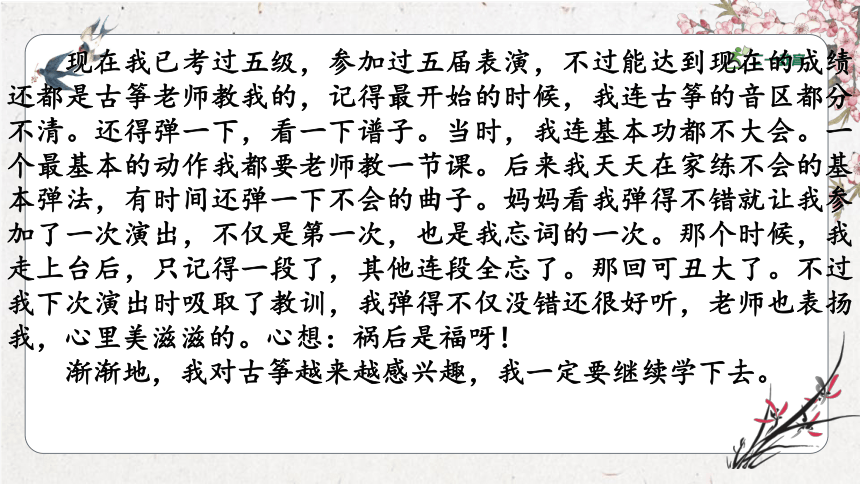 现在我已考过五级，参加过五届表演，不过能达到现在的成绩
还都是古筝老师教我的，记得最开始的时候，我连古筝的音区都分
不清。还得弹一下，看一下谱子。当时，我连基本功都不大会。一
个最基本的动作我都要老师教一节课。后来我天天在家练不会的基
本弹法，有时间还弹一下不会的曲子。妈妈看我弹得不错就让我参
加了一次演出，不仅是第一次，也是我忘词的一次。那个时候，我
走上台后，只记得一段了，其他连段全忘了。那回可丑大了。不过
我下次演出时吸取了教训，我弹得不仅没错还很好听，老师也表扬
我，心里美滋滋的。心想：祸后是福呀！
渐渐地，我对古筝越来越感兴趣，我一定要继续学下去。